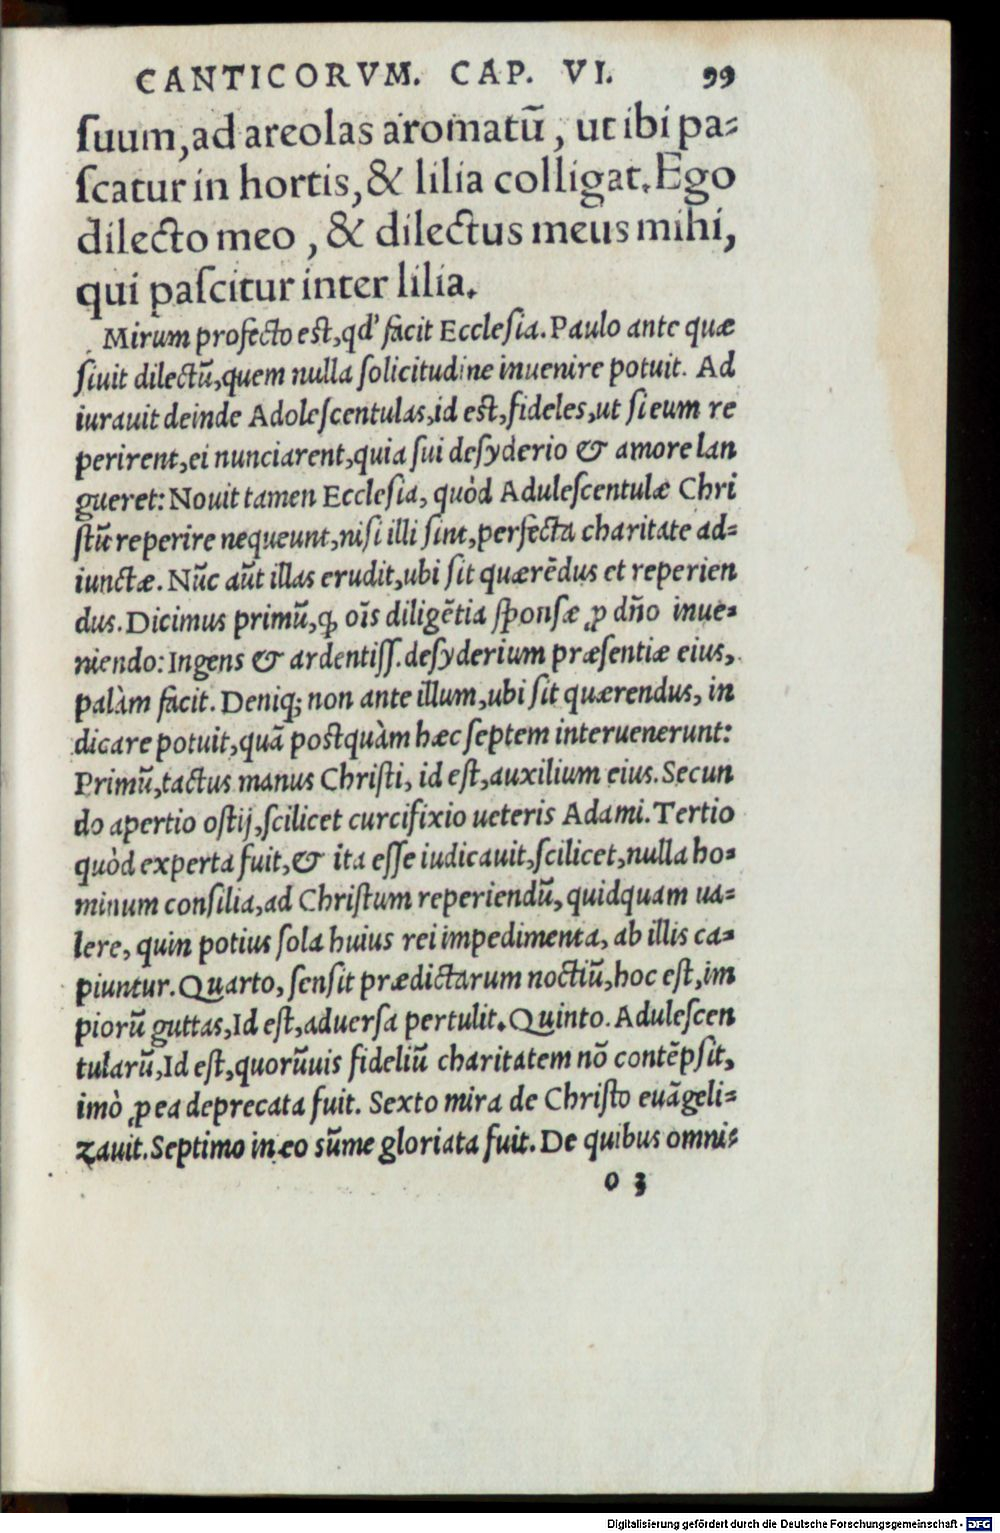 CANTICORVM. CAP. VI. 99
ſuum, ad areolas aromatū, ut ibi pa⸗
ſcatur in hortis, & lilia colligat. Ego
dilecto meo, & dilectus meus mihi,
qui paſcitur inter lilia.
Mirum profecto est, qd' facit Eccleſia. Paulo ante quæ
ſiuit dilectū, quem nulla ſolicitudine inuenire potuit. Ad
iurauit deinde Adoleſcentulas, id eſt, fideles, ut ſi eum re
perirent, ei nunciarent, quia ſui deſyderio & amore lan
gueret: Nouit tamen Eccleſia, quòd Aduleſcentulæ Chri
ſtū reperire nequeunt, niſi illi ſint, perfecta charitate ad⸗
iunctæ. Nūc aūt illas erudit, ubi ſit quærēdus et reperien
dus. Dicimus primū, ꝙ oīs diligētia ſponſæ ꝓ dño inue⸗
niendo: Ingens & ardentiſſ. deſyderium præſentiæ eius,
palàm facit. Deniq; non ante illum, ubi ſit quærendus, in
dicare potuit, quā postquàm hæc ſeptem interuenerunt:
Primū, tactus manus Chriſti, id eſt, auxilium eius. Secun
do apertio oſtij, ſcilicet curcifixio ueteris Adami. Tertio
quòd experta fuit, & ita eſſe iudicauit, ſcilicet, nulla ho⸗
minum conſilia, ad Chriſtum reperiendū, quidquam ua⸗
lere, quin potius ſola huius rei impedimenta, ab illis ca⸗
piuntur. Quarto, ſenſit prædictarum noctiū, hoc eſt, im
piorū guttas, Id eſt, aduerſa pertulit. Quinto. Aduleſcen
tularū, Id eſt, quorūuis fideliū charitatem nō contēpſit,
imò ꝓ ea deprecata fuit. Sexto mira de Chriſto euāgeli⸗
zauit. Septimo in eo sūme gloriata fuit. De quibus omni⸗
o 3
Digitalisierung gefördert durch die Deutsche Forschungsgemeinschaft - DFG